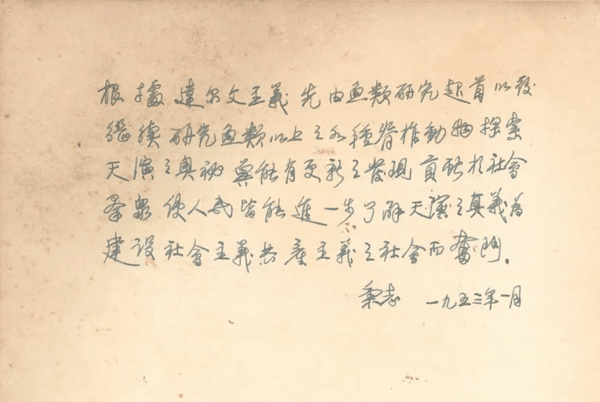 根據達尔文主義 先由魚類研究起首以後
繼續研究魚類以上之各種脊椎動物探索
天演之奧祕 冀能有更新之發現貢献於社會
羣眾 使人民皆能進一步了解天演之真義為
建設社會主義共產主義之社會而奮鬥。
秉志 一九五三年一月